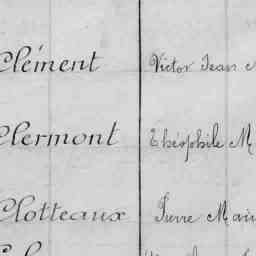 Clément Victor Jean
Clermont Théophile M
Clotteaux Pierre Mari